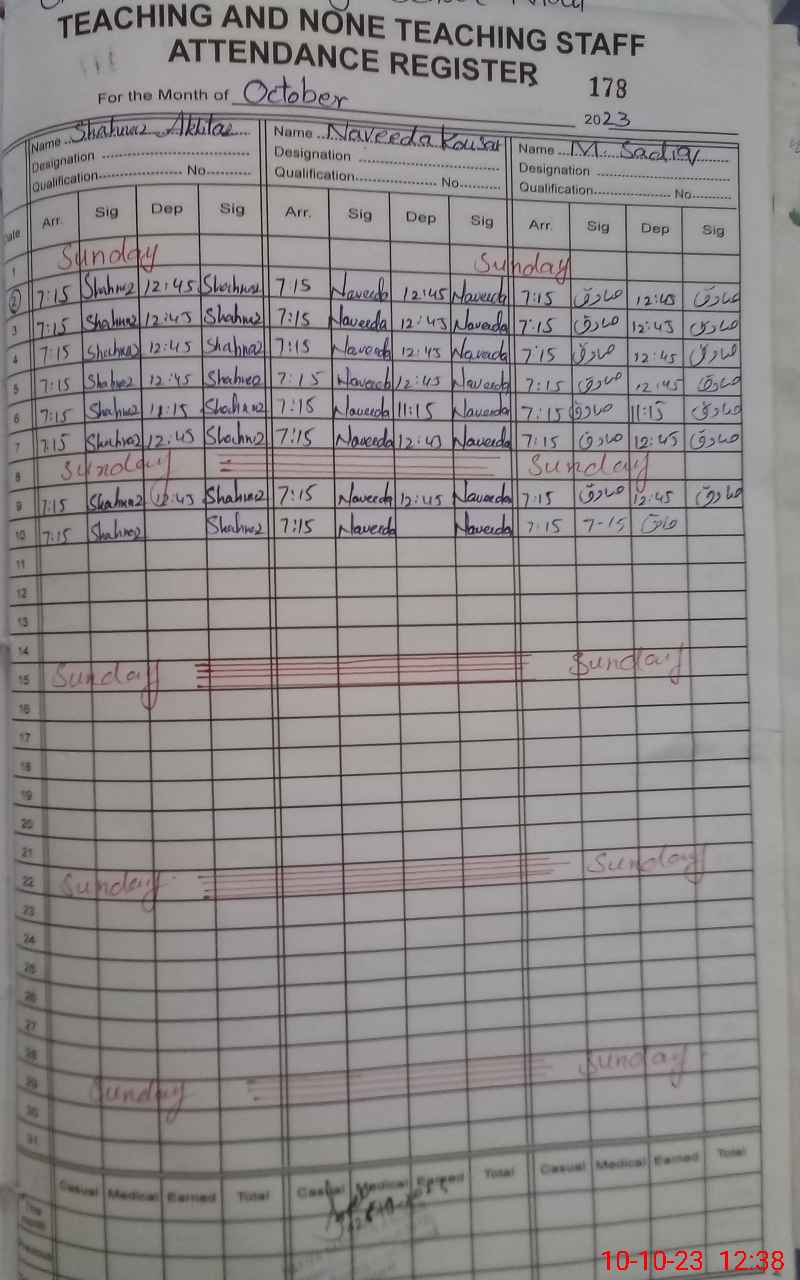 TEACHING AND NONE TEACHING STAFF
ATTENDANCE REGISTER
178
For the Month of October 2023
Name Name Naveeda Kousar Name M. Sadiq
Designation Designation Designation
Qualification No. Qualification No. Qualification No.
Date Arr. Sig Dep Sig Arr. Sig Dep Sig Arr. Sig Dep Sig
1 Sunday Sunday
2 7:15 Shahnaz 12:45 Shahnaz 7:15 Naveeda 12:45 Naveeda 7:15 صادق 12:45 صادق
3 7:15 Shahnaz 12:45 Shahnaz 7:15 Naveeda 12:45 Naveeda 7:15 صادق 12:45 صادق
4 7:15 Shahnaz 12:45 Shahnaz 7:15 Naveeda 12:45 Naveeda 7:15 صادق 12:45 صادق
5 7:15 Shahnaz 12:45 Shahnaz 7:15 Naveeda 12:45 Naveeda 7:15 صادق 12:45 صادق
6 7:15 Shahnaz 11:15 Shahnaz 7:15 Naveeda 11:15 Naveeda 7:15 صادق 11:15 صادق
7 7:15 Shahnaz 12:45 Shahnaz 7:15 Naveeda 12:45 Naveeda 7:15 صادق 12:45 صادق
8 Sunday Sunday
9 7:15 Shahnaz 12:45 Shahnaz 7:15 Naveeda 12:45 Naveeda 7:15 صادق 12:45 صادق
10 7:15 Shahnaz Shahnaz 7:15 Naveeda Naveeda 7:15 7-15 صادق
11
12
13
14
15 Sunday Sunday
16
17
18
19
20
21
22 Sunday Sunday
23
24
25
26
27
28
29 Sunday Sunday
30
31
Casual Medical Earned Total Casual Medical Earned Total Casual Medical Earned Total
10-10-23 12:38